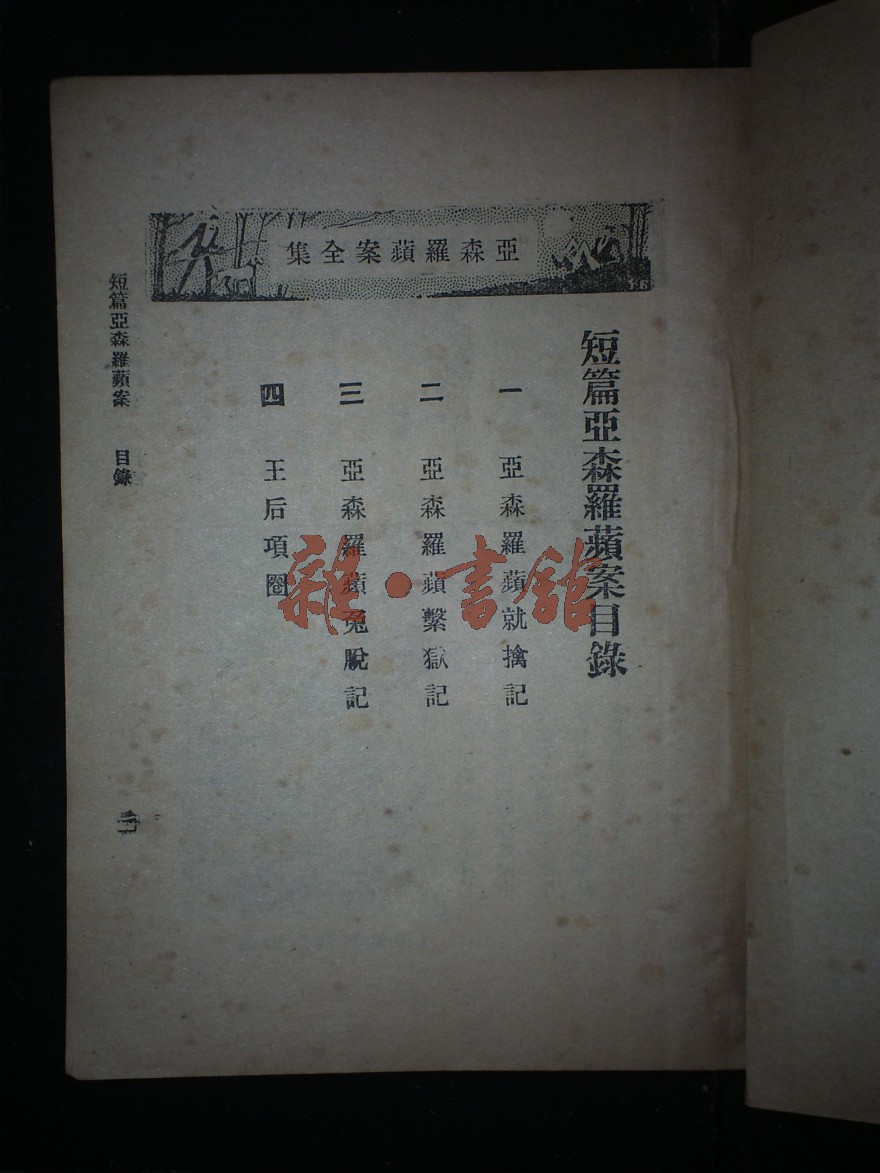 亞森羅蘋案全集
短篇亞森羅蘋案目錄
一 亞森羅蘋就擒記
二 亞森羅蘋繫獄記
三 亞森羅蘋兔脫記
四 王后項圈
短篇亞森羅蘋案 目錄
雜·書館